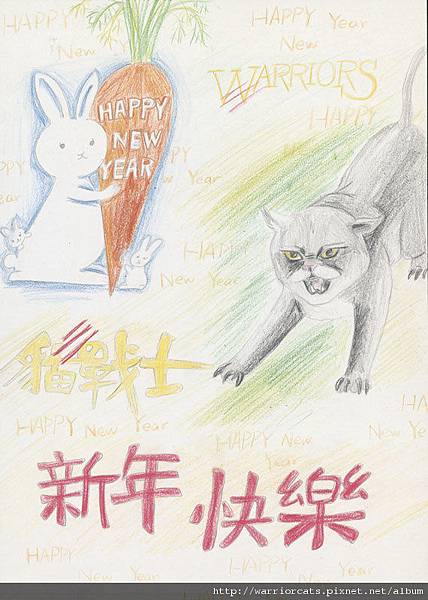 HAPPY
New Year
HAPPY Year
New
WARRIORS
HAPPY
NEW
YEAR
HAPPY
HAPPY
Year
PY
Year
HAPPY
New Year
貓戰士
HA
New Ye
HAPPY New Year
HAPPY New
Year
新年快樂
HAPPY
New Year
HAPPY
New Year
http://warriorcats.pixnet.net/album